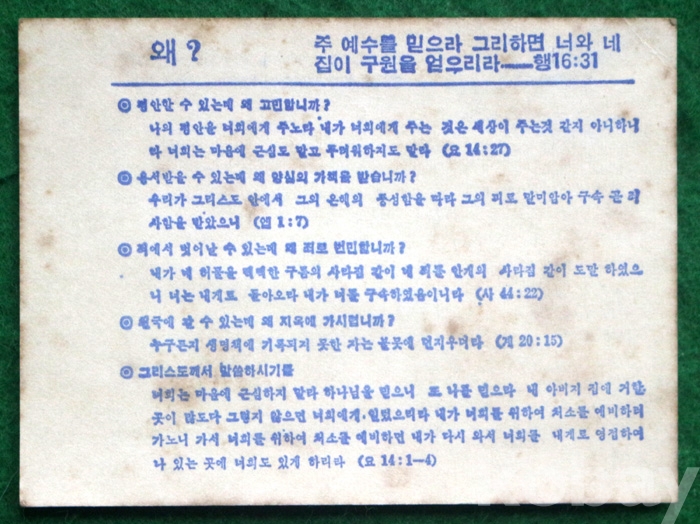 왜?
주 예수를 믿으라 그리하면 너와 네
집이 구원을 얻우리라——행16:31
◎ 평안할 수 있는데 왜 고민합니까?
나의 평안을 너희에게 주노라 내가 너희에게 주는 것은 세상이 주는것 같지 아니하니
라 너희는 마음에 근심도 말고 두려워하지도 말라 (요 14:27)
◎ 용서받을 수 있는데 왜 양심의 가책을 받습니까?
우리가 그리스도 안에서 그의 은혜의 풍성함을 따라 그의 피로 말미암아 구속 곧 죄
사함을 받았으니 (엡 1:7)
◎ 죄에서 벗어날 수 있는데 왜 죄로 번민합니까?
내가 네 허물을 빽빽한 구름의 사라짐 같이 네 죄를 안개의 사라짐 같이 도말 하였으
니 너는 내게로 돌아오라 내가 너를 구속하였음이니라 (사 44:22)
◎ 천국에 갈 수 있는데 왜 지옥에 가시렵니까?
누구든지 생명책에 기록되지 못한 자는 불못에 던지우더라 (계 20:15)
◎ 그리스도께서 말씀하시기를
너희는 마음에 근심하지 말라 하나님을 믿으니 또 나를 믿으라 내 아버지 집에 거할
곳이 많도다 그렇지 않으면 너희에게 일렀으리라 내가 너희를 위하여 처소를 예비하러
가노니 가서 너희를 위하여 처소를 예비하면 내가 다시 와서 너희를 내게로 영접하여
나 있는 곳에 너희도 있게 하리라 (요 14:1—4)